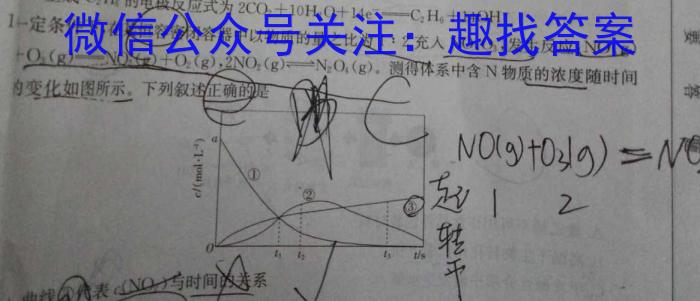 的电极反应式为 2CO₂+10H₂O+14e⁻══C₂H₆+
微信公众号关注：趣找答案
+O₃(g)══NO₂(g)+O₂(g),2NO₂(g)══N₂O₄(g)。测得体系中含 N 物质的浓度随时间
的变化如图所示。下列叙述正确的是
C
c/(mol·L⁻¹)
a
①
②
③
0 t₁ t₂ t₃ t/s
NO(g)+O₃(g) = NO
起 1 2
转
平
代表 c(NO₂)与时间的关系